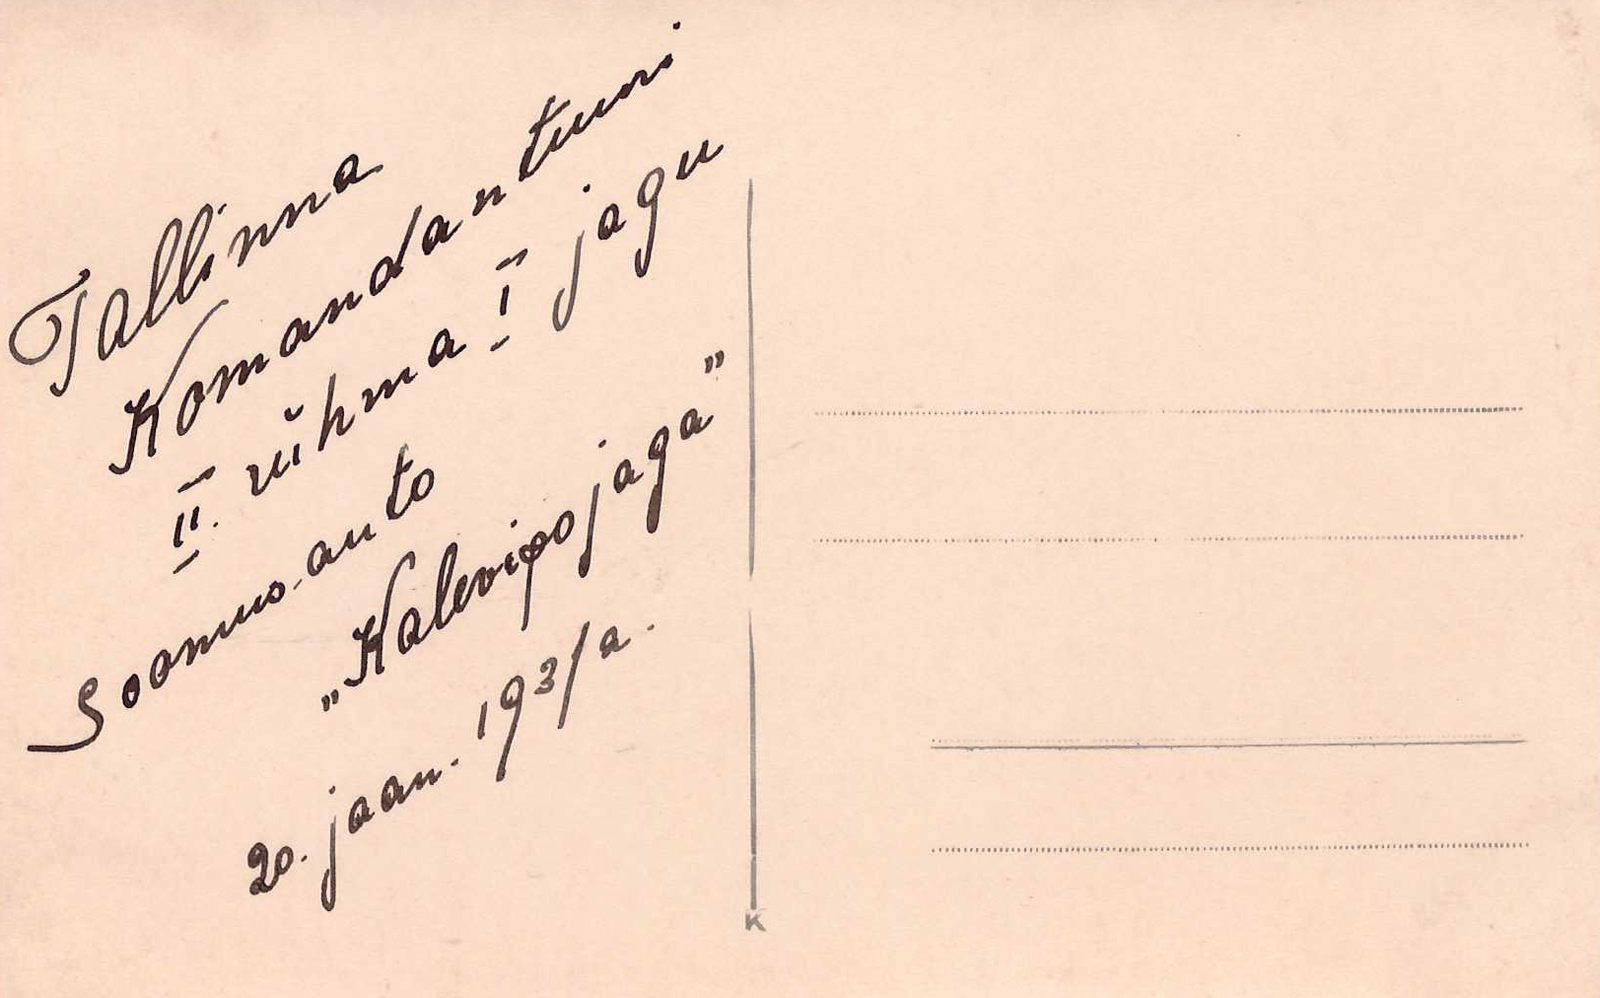 Tallinna
Komandantuuri
II. rühma I jagu
Soomus-auto
„Kalevipojaga”
20. jaan. 1931 a.
K